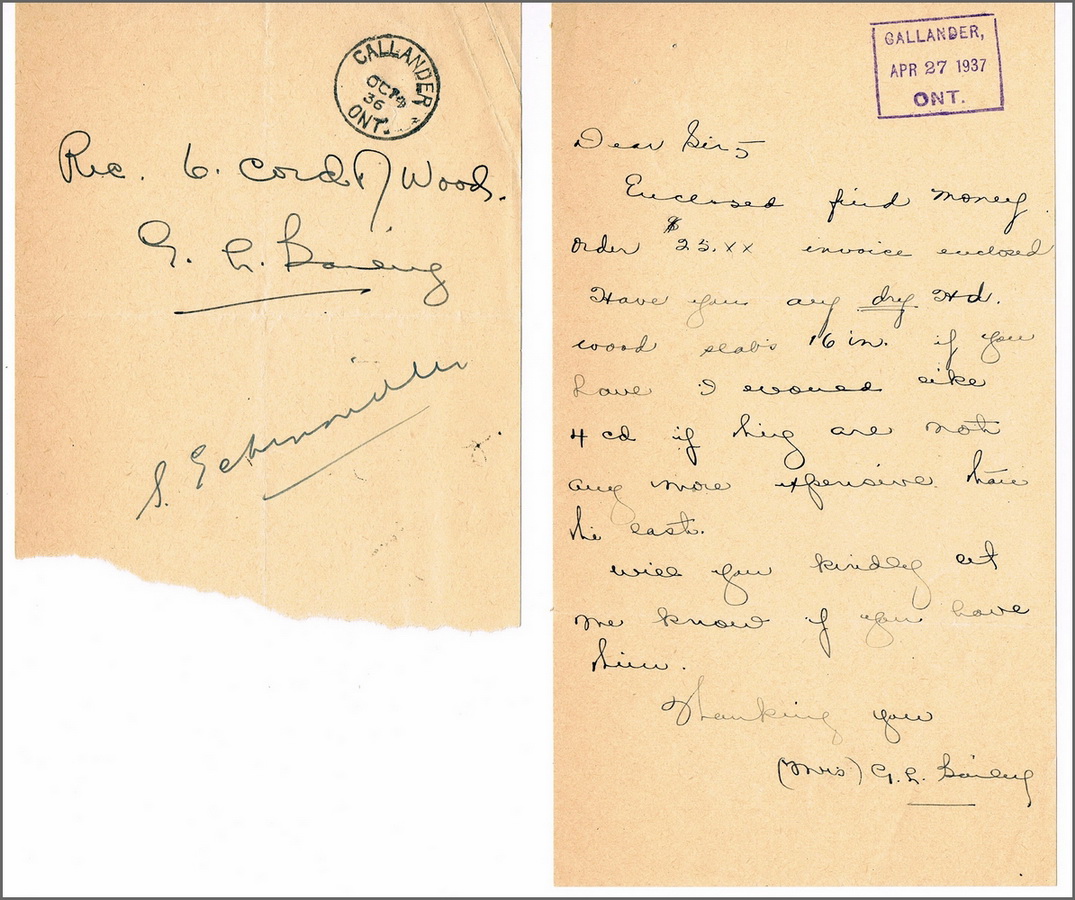 CALLANDER
OCT
36
ONT.
Rec. 6. cord of Wood.
G. L. Bailey
S.
CALLANDER,
APR 27 1937
ONT.
Dear Sir,
Enclosed find money
order $25.xx invoice enclosed
Have you any dry Hd.
wood slabs 16 in. if you
have I would like
4 cd if they are not
any more expensive than
the last.
will you kindly let
me know if you have
them.
Thanking you
(Mrs) G. L. Bailey